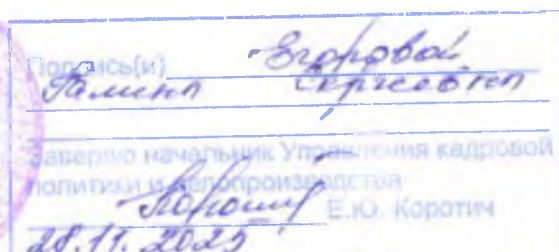 Подпись(и) Егоровой
Галины Сергеевны
Заверяю начальник Управления кадровой
политики и делопроизводства
Е.Ю. Коротич
28.11.2025